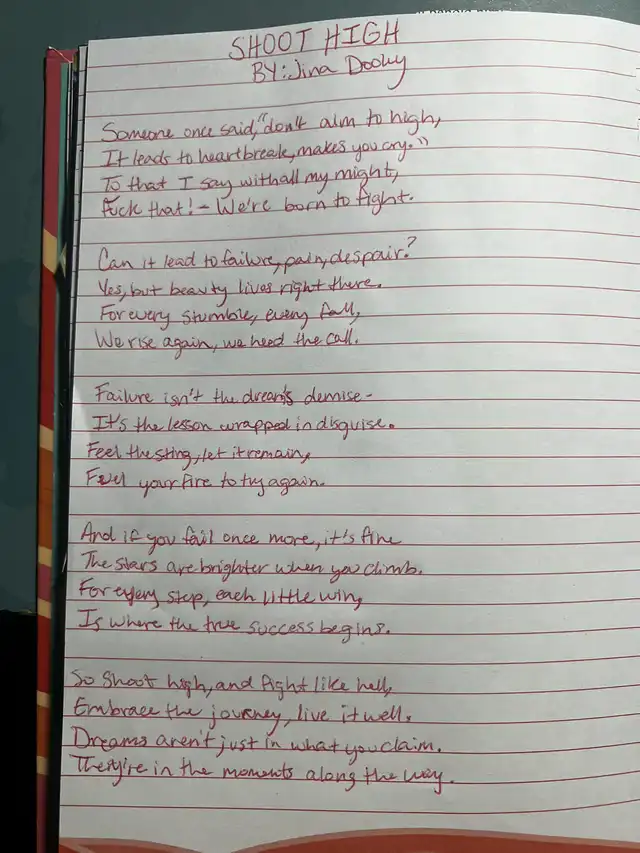 SHOOT HIGH
BY: Jina Dooly
Someone once said, "don't aim to high,
It leads to heartbreak, makes you cry."
To that I say withall my might,
Fuck that! - We're born to fight.
Can it lead to failure, pain, despair?
Yes, but beauty lives right there.
For every stumble, every fall,
We rise again, we heed the call.
Failure isn't the dream's demise -
It's the lesson wrapped in disguise.
Feel the sting, let it remain,
Fuel your fire to try again.
And if you fail once more, it's fine
The stars are brighter when you climb.
For every step, each little win,
Is where the true success begins.
So shoot high, and fight like hell,
Embrace the journey, live it well.
Dreams aren't just in what you claim.
They're in the moments along the way.